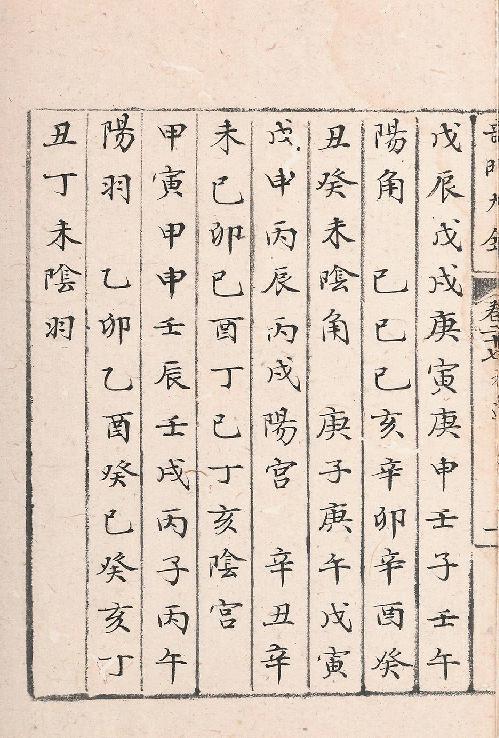 戊辰戊戌庚寅庚申壬子壬午
陽角　己巳己亥辛卯辛酉癸
丑癸未陰角　庚子庚午戊寅
戊申丙辰丙戌陽宮　辛丑辛
未己卯己酉丁巳丁亥陰宮
甲寅甲申壬辰壬戌丙子丙午
陽羽　乙卯乙酉癸巳癸亥丁
丑丁未陰羽